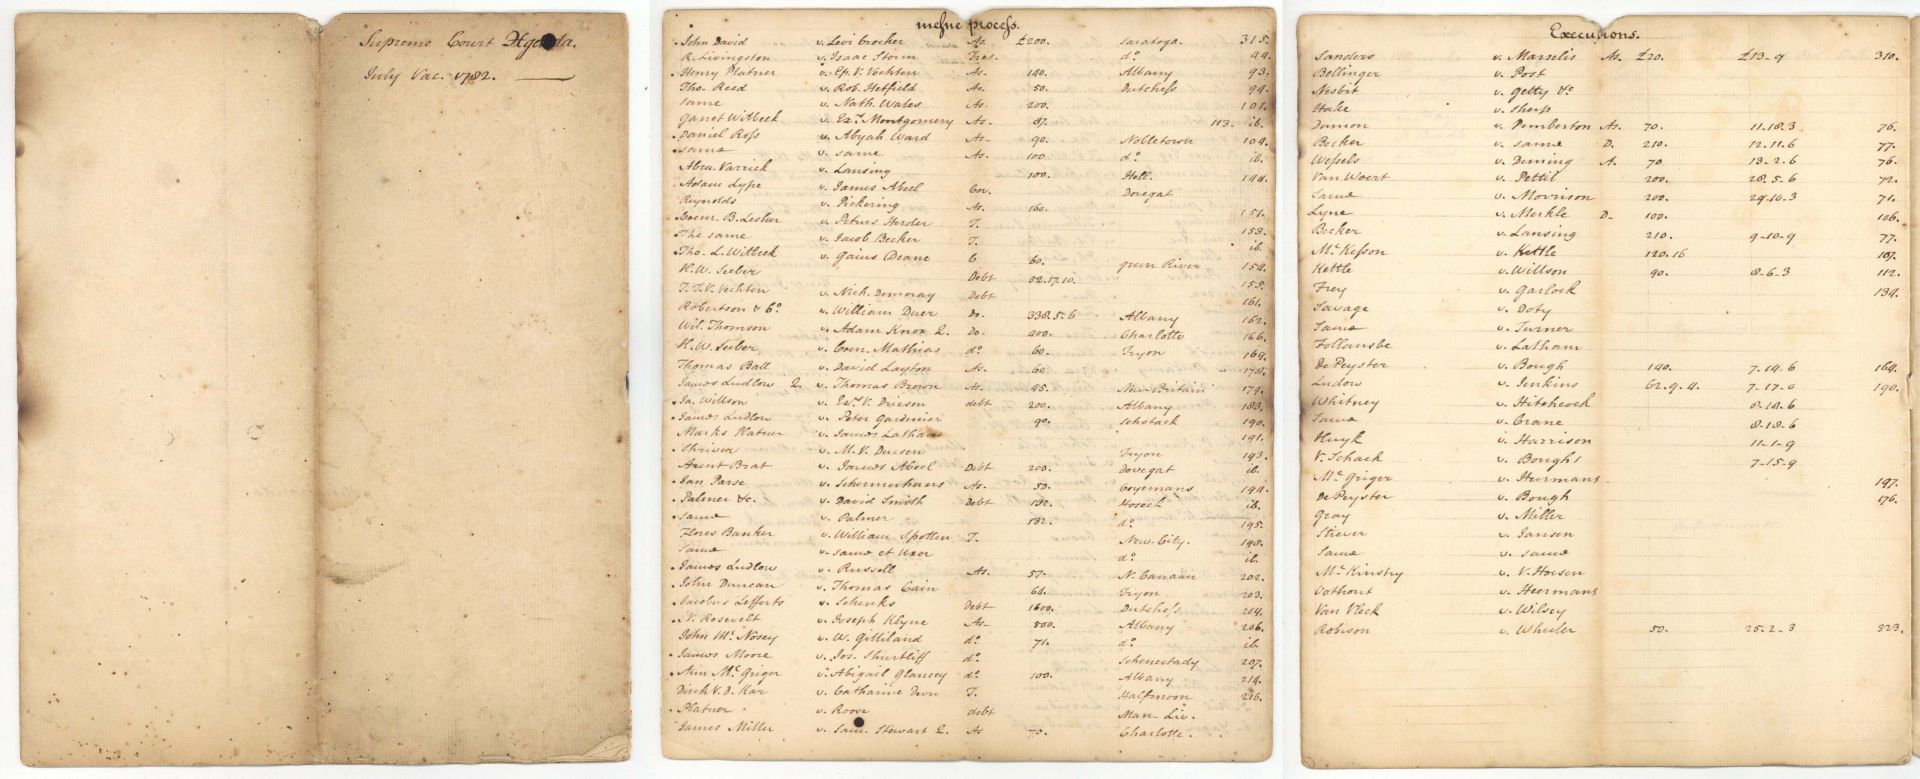 Supreme Court Agenda.
July Vac. 1782.
mesne process.
John David v. Levi Crocker As. £200. Saratoga. 315.
R. Livingston v. Isaac Storm Tres. do. 44.
Henry Platner v. Ep. V. Vechten As. 140. Albany 93.
Tho. Reed v. Rob. Hetfield As. 50. Dutchess 94.
Same v. Nath. Wales As. 200. 101.
Garret Witbeck v. Exr. Montgomery As. 87. 113. ib.
Daniel Ross v. Abyah Ward As. 90. Nobletown 104.
Same v. same As. 100 do. ib.
Abra. Varrick v. Lansing 100. Holl. 144.
Adam Lype v. James Abeel Cov. Dovegat
Reynolds v. Pickering As. 160. 151.
Coenr. B. Lesher v. Petrus Herder T. 153.
The same v. Jacob Becker T. ib.
Tho. L. Witbeck v. Gaius Deane C 60. green River 154.
H. W. Seeber Debt 52.17.10. 155.
T. T. V. Vechten v. Nich. Demoray Debt 161.
Robertson & Co. v. William Duer Do. 338.5.6 Albany 162.
Wil. Thomson v. Adam Knox 2. Do. 400. Charlotte 166.
H. W. Seeber v. Coen. Mathias do. 60. Tryon 169.
Thomas Ball v. David Layton As. 60 178.
James Ludlow 2. v. Thomas Brown As. 45. New Britain 179.
Ja. Willson v. V. Driesen debt 200. Albany 183.
James Ludlow v. Peter Gardinier 90. Schotack 190.
Marks Platner v. James Latham 191.
Shriver v. M. V. Deusen Tryon 193.
Arent Brat v. James Abeel Debt 200. Dovegat ib.
Jan Parse v. Schermerhorns As. 50. Coyemans 194.
Palmer &c. v. David Smith Debt 132. Hoseck ib.
Same v. Palmer 132. do. 195.
Flores Banker v. William Spotten T. New-City. 198.
Same v. same et Uxor do. ib.
James Ludlow v. Russell As. 57. N. Canaan 202.
John Duncan v. Thomas Cain 64. Tryon 203.
Jacobus Lefferts v. Schenks Debt 1600. Dutchess 204.
N. Rosevelt v. Joseph Klyne As. 500. Albany 206.
John Mc. Nosey v. W. Gilliland do. 71. do. ib.
James Moore v. Jos. Shurtliff do. Schenectady 207.
Ann Mc. Griger v. Abigail Glancey do. 100. Albany 214.
Dirck V. D. Kar v. Catharine Deen T. Halfmoon 216.
Platner v. Roose debt Man. Liv.
James Miller v. Sam. Stewart 2. As 70. Charlotte.
Executions.
Sanders v. Marselis As. £20. £13-9 310.
Bellinger v. Post
Nesbit v. Getty &c.
Hake v. Sherp
Damon v. Pemberton As. 70. 11.18.3 76.
Becker v. same D. 210. 12.11.6 77.
Wessels v. Deming A. 70 13-2.6 76.
Van Woert v. Pettit 200. 28.5.6 72.
Same v. Morrison 200. 29.10-3 71.
Lyne v. Merkle D- 100. 106.
Becker v. Lansing 210. 9-10-9 77.
Mc. Kesson v. Kettle 120.16 107.
Kettle v. Willson 90. 8-6-3 112.
Frey v. Garlock 134.
Savage v. Doty
Same v. Turner
Follansbe v. Latham
DePeyster v. Bough 140. 7.14.6 164.
Ludlow v. Jenkins 62.9.4. 7-17-0 190.
Whitney v. Hitchcock 8-18-6
Same v. Crane 8-18-6
Huyk v. Harrison 11-1-9
V. Schack v. Boughs 7-15-9
Mc. Griger v. Hurmans. 197.
DePeyster v. Bough 176.
Gray v. Miller
Strever v. Jansen
Same v. same
Mc. Kinstry v. V. Hoesen
Oothout v. Heermans
Van Vleck v. Wilsey
Robison v. Wheeler 50. 25-2-3 323.